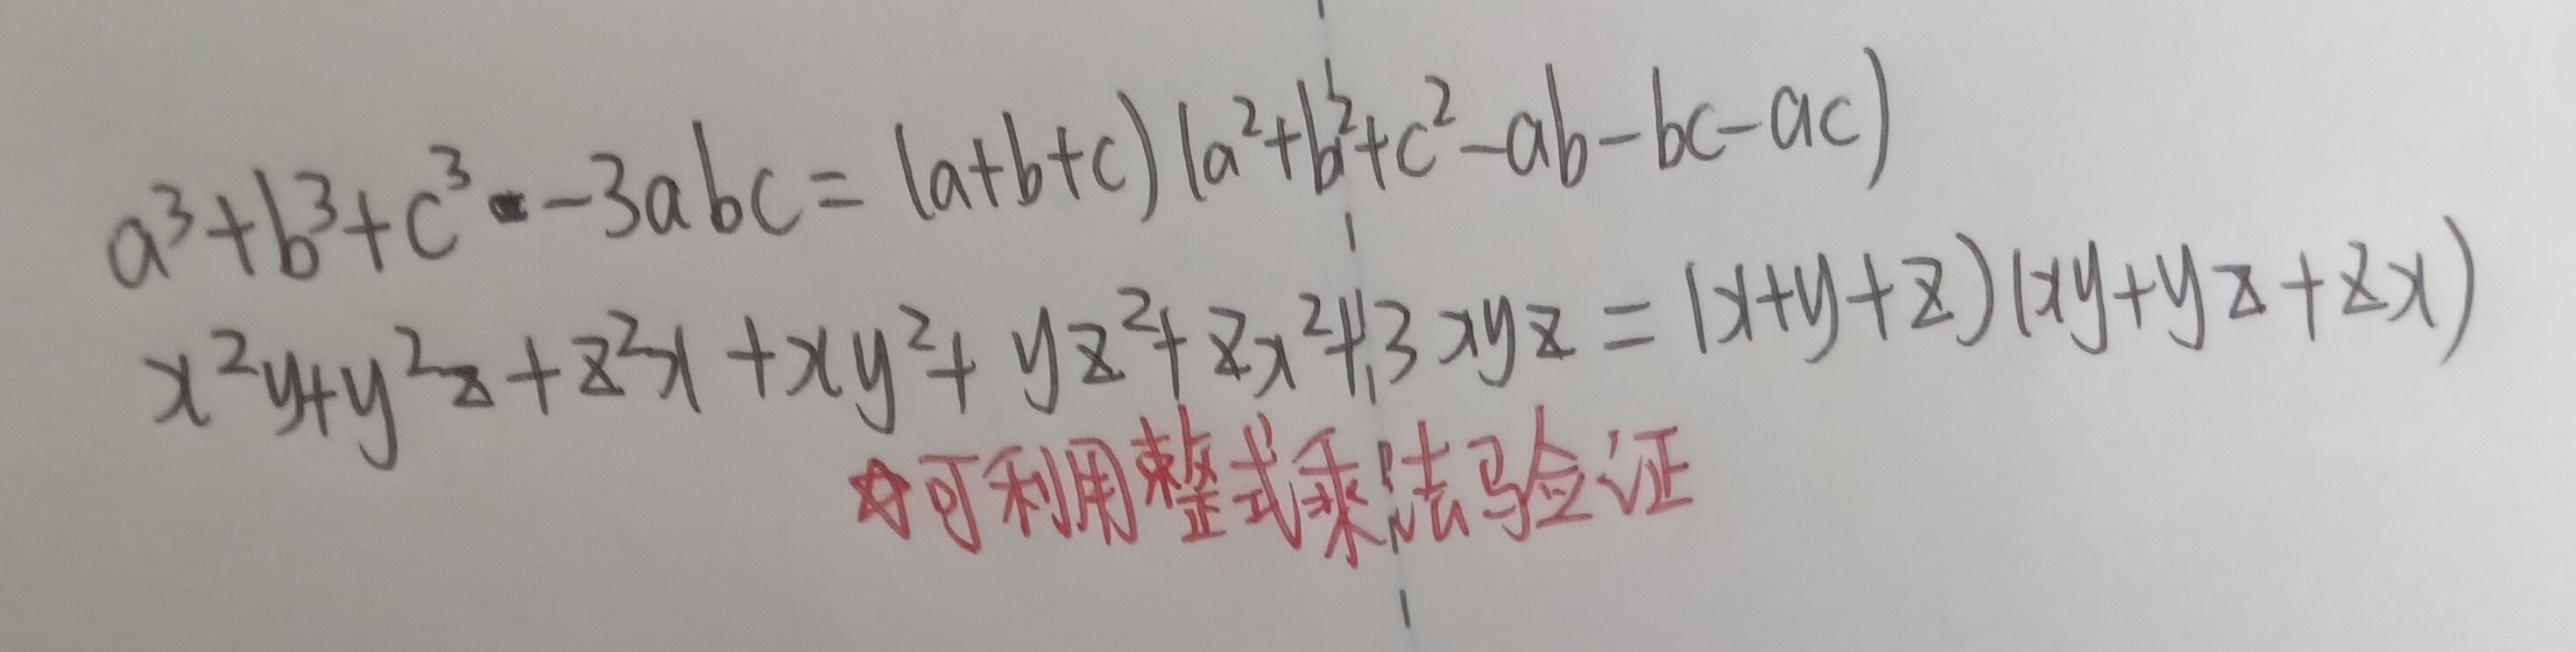 a³+b³+c³-3abc=(a+b+c)(a²+b²+c²-ab-bc-ac)
x²y+y²z+z²x+xy²+yz²+zx²+3xyz=(x+y+z)(xy+yz+zx)
☆可利用整式乘法验证